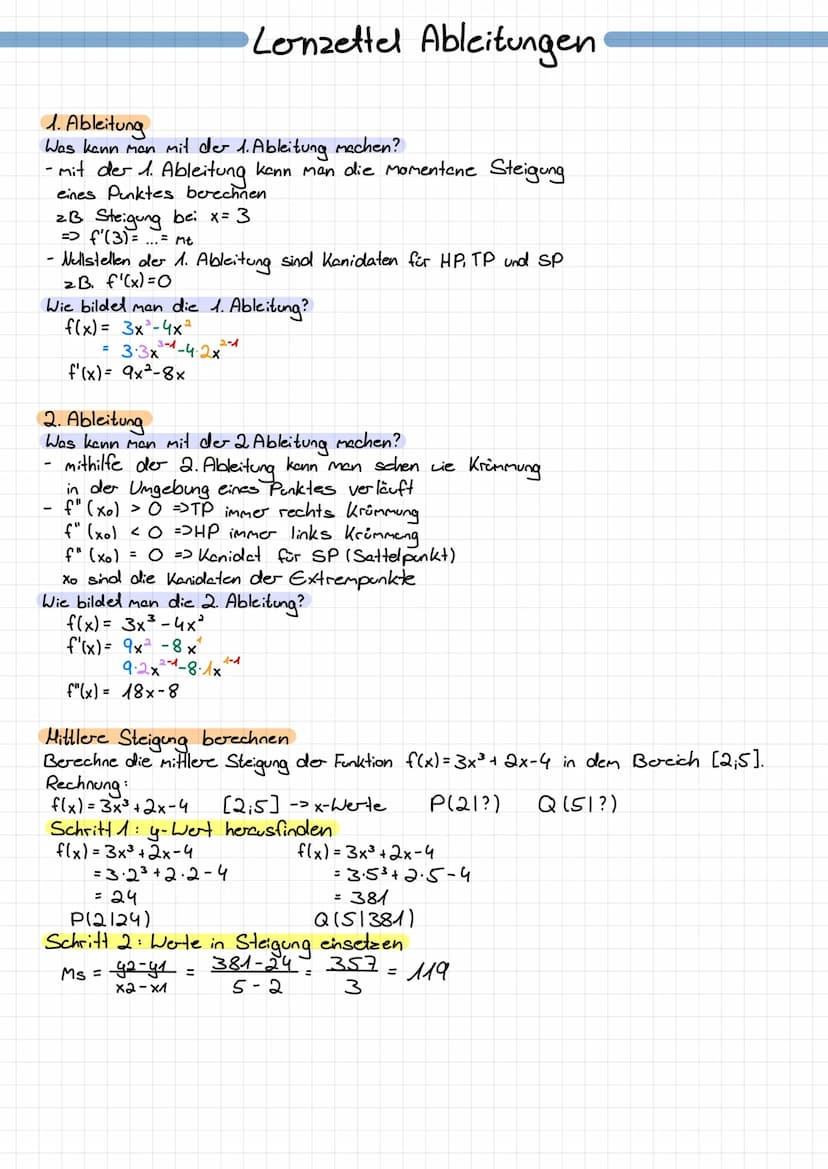 Lernzettel Ableitungen
1. Ableitung
Was kann man mit der 1. Ableitung machen?
- mit der 1. Ableitung kann man die momentane Steigung
eines Punktes berechnen
zB Steigung bei x = 3
=> f'(3) = ... = mt
- Nullstellen der 1. Ableitung sind Kanidaten für HP, TP und SP
zB. f'(x)=0
Wie bildet man die 1. Ableitung?
f(x) = 3x³-4x²
= 3·3x³⁻¹-4·2x²⁻¹
f'(x) = 9x²-8x
2. Ableitung
Was kann man mit der 2 Ableitung machen?
- mithilfe der 2. Ableitung kann man sehen wie Krümmung
in der Umgebung eines Punktes verläuft
- f" (x₀) > 0 =>TP immer rechts Krümmung
f" (x₀) < 0 =>HP immer links Krümmung
f" (x₀) = 0 => Kanidat für SP (Sattelpunkt)
x₀ sind die Kanidaten der Extrempunkte
Wie bildet man die 2. Ableitung?
f(x) = 3x³-4x²
f'(x) = 9x² -8x¹
9·2x²⁻¹-8·1x¹⁻¹
f"(x) = 18x-8
Mittlere Steigung berechnen
Berechne die mittlere Steigung der Funktion f(x)=3x³+2x-4 in dem Bereich [2;5].
Rechnung:
f(x) = 3x³+2x-4 [2;5] -> x-Werte P(2|?) Q(5|?)
Schritt 1: y-Wert herausfinden
f(x) = 3x³+2x-4 f(x) = 3x³+2x-4
= 3·2³+2·2-4 = 3·5³+2·5-4
= 24 = 381
P(2|24) Q(5|381)
Schritt 2: Werte in Steigung einsetzen
Ms = y2-y1 / x2-x1 = 381-24 / 5-2 = 357 / 3 = 119